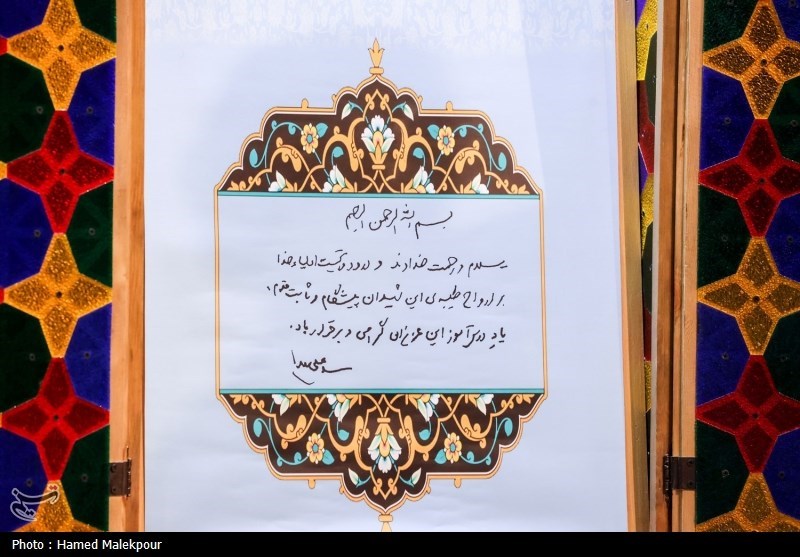 بسم الله الرحمن الرحیم
سلام و رحمت خداوند و درود و تحیت اولیاء خدا
بر ارواح طیبه‌ی این شهیدان پیشگام و ثابت‌قدم.
یادِ درس‌آموز این عزیزان گرامی و برقرار باد.
سیدعلی خامنه‌ای
Photo : Hamed Malekpour